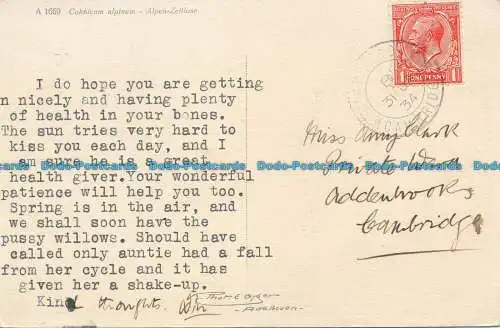 A 1669 Colchicum alpinum – Alpen-Zeitlose
I do hope you are getting
n nicely and having plenty
of health in your bones.
The sun tries very hard to
kiss you each day, and I
am sure he is a great
health giver. Your wonderful
patience will help you too.
Spring is in the air, and
we shall soon have the
pussy willows. Should have
called only auntie had a fall
from her cycle and it has
given her a shake-up.
Kind thoughts.
POSTAGE
ONE PENNY
1 1
Miss Amy Clark
Private Ward
Addenbrooks
Cambridge
Dodo-Postcards Dodo-Postcards Dodo-Postcards Dodo-Postcards Dodo-Postcards